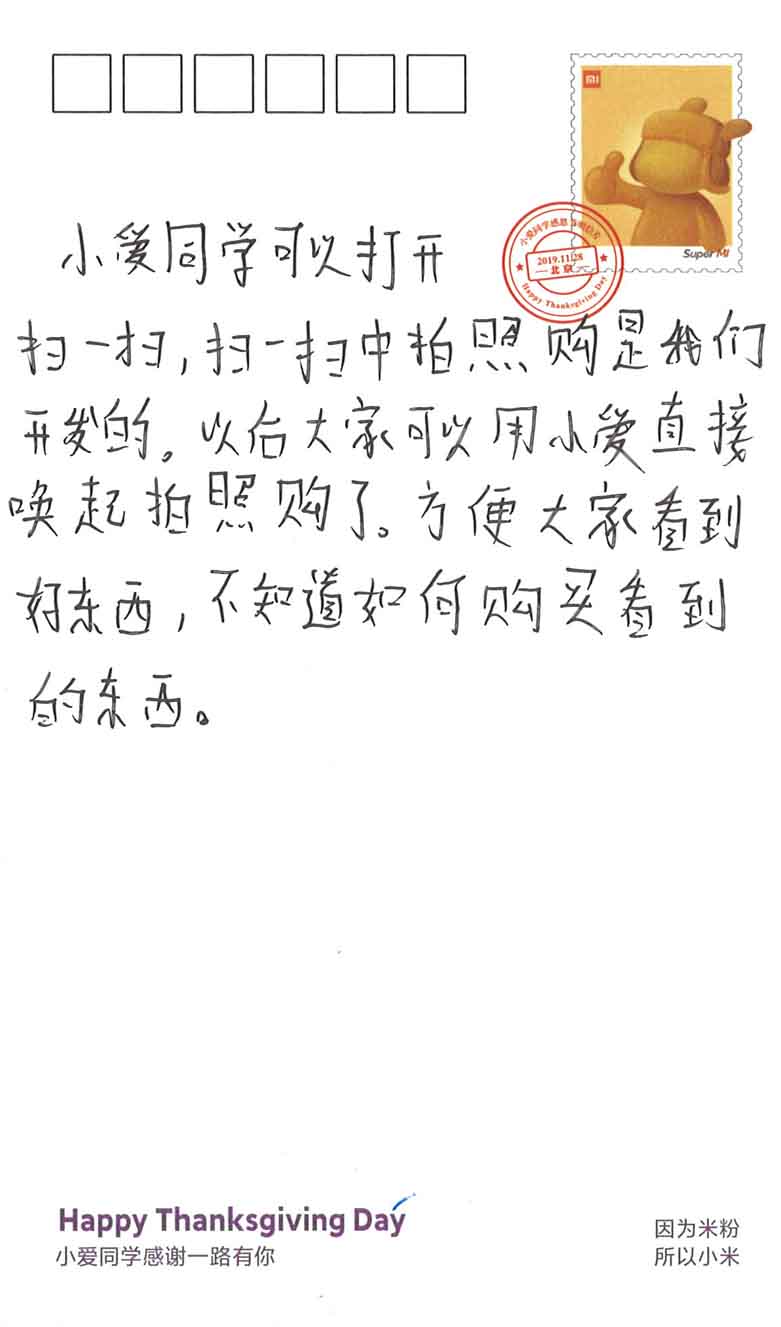 MI
Super MI
小爱同学感恩节明信片
2019.11.28
北京
Happy Thanksgiving Day
小爱同学可以打开
扫一扫，扫一扫中拍照购是我们
开发的。以后大家可以用小爱直接
唤起拍照购了。方便大家看到
好东西，不知道如何购买看到
的东西。
Happy Thanksgiving Day
小爱同学感谢一路有你
因为米粉
所以小米